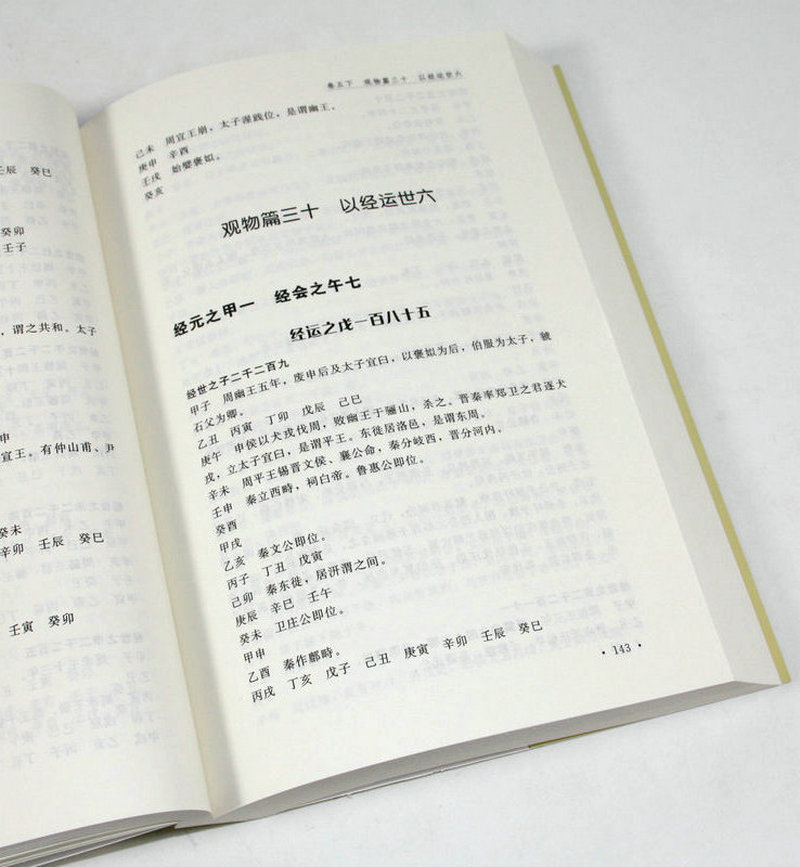 壬辰 癸巳
癸卯
壬子
，谓之共和。太子
申
宣王。有仲山甫、尹
癸未
辛卯 壬辰 癸巳
壬寅 癸卯
卷五下 观物篇三十 以经运世六
己未 周宣王崩，太子涅践位，是谓幽王。
庚申 辛酉
壬戌 始嬖褒姒。
癸亥
观物篇三十 以经运世六
经元之甲一 经会之午七
经运之戊一百八十五
经世之子二千二百九
甲子 周幽王五年，废申后及太子宜臼，以褒姒为后，伯服为太子，虢
石父为卿。
乙丑 丙寅 丁卯 戊辰 己巳
庚午 申侯以犬戎伐周，败幽王于骊山，杀之。晋秦率郑卫之君逐犬
戎，立太子宜臼，是谓平王。东徙居洛邑，是谓东周。
辛未 周平王锡晋文侯、襄公命，秦分岐西，晋分河内。
壬申 秦立西畤，祠白帝。鲁惠公即位。
癸酉
甲戌
乙亥 秦文公即位。
丙子 丁丑 戊寅
己卯 秦东徙，居汧渭之间。
庚辰 辛巳 壬午
癸未 卫庄公即位。
甲申
乙酉 秦作鄜畤。
丙戌 丁亥 戊子 己丑 庚寅 辛卯 壬辰 癸巳
· 143 ·